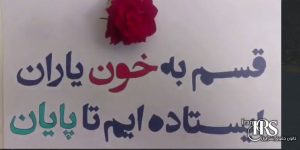 قسم به خون یاران
ایستاده ایم تا پایان
HRS